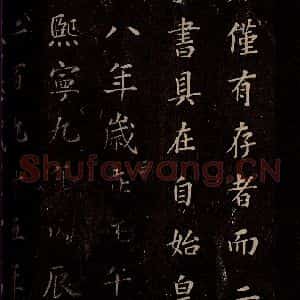 僅有存者而二
書具在自始皇
八年歲在壬午
熙寧九年丙辰
百九十五年
Shufawang.CN